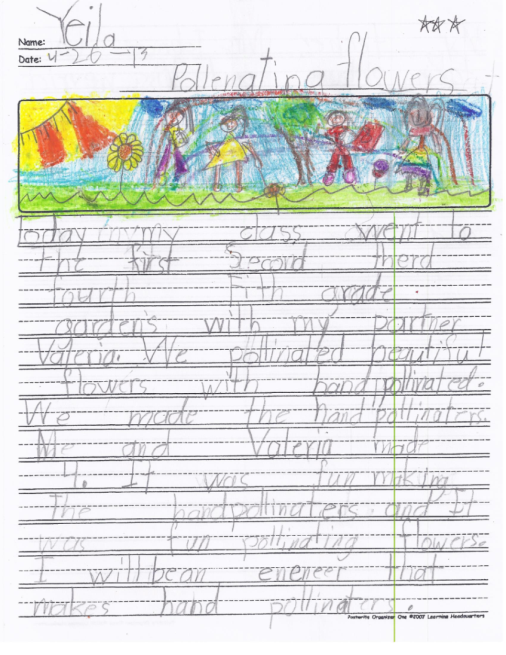 Name: Yeila
Date: 4-26-13
Pollenating flowers
today my my class went to
the first Second therd
fourth Fith grade.
gardens with my partner
Valeria. We pollinated beautiful
flowers with hand pollinated.
We made the hand pollinaters.
Me and Valeria made
4. It was fun making
The handpollinaters and It
was fun pollinating flowers.
I will be an eneneer that
makes hand pollinaters.
Postwrite Organizer One ©2007 Learning Headquarters